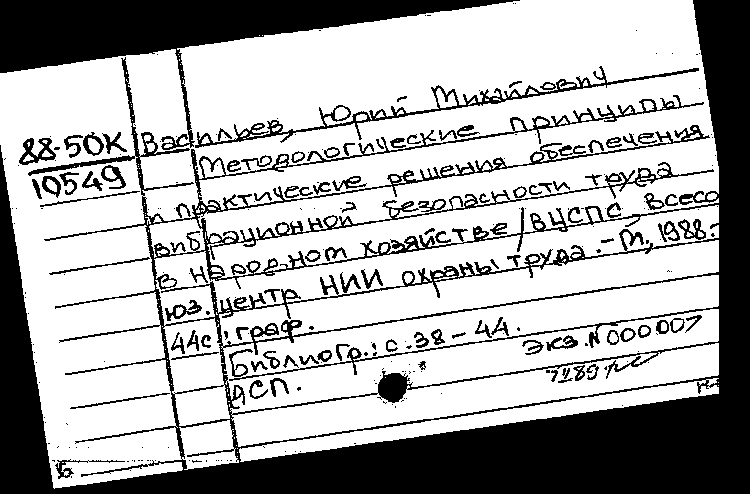 88-50К
10549
Васильев, Юрий Михайлович
Методологические принципы
и практические решения обеспечения
вибрационной безопасности труда
в народном хозяйстве / ВЦСПС, Всесо
юз. центр НИИ охраны труда. - М., 1988.-
44с.: граф.
Библиогр.: с. 38-44.
ДСП.
Экз. N 000007